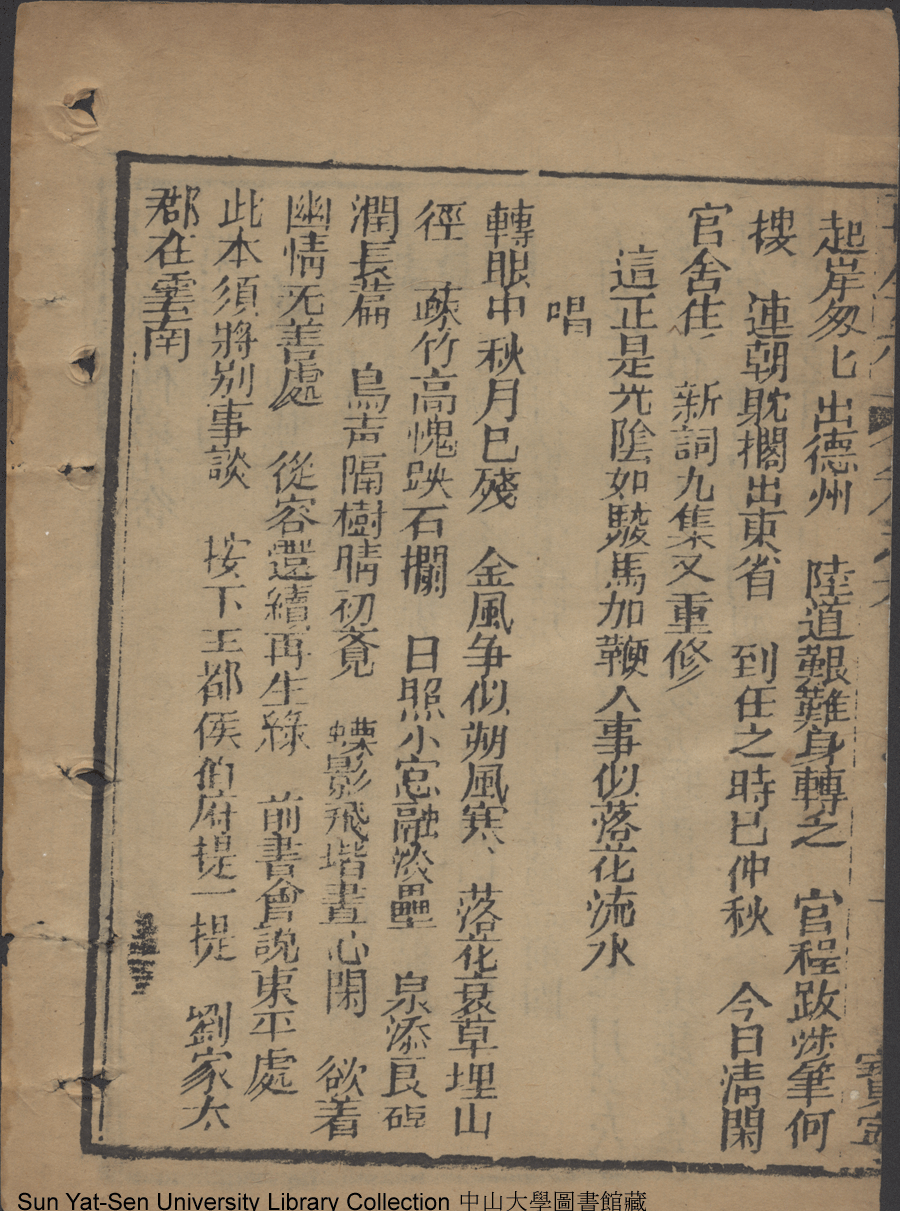 起岸匆匕出德州　陸道艱難身轉乏　官程跋涉筆何
搂　連朝躭擱出東省　到任之時已仲秋　今日清閑
官舍住　新詞九集又重修
這正是光陰如駿馬加鞭人事似落花流水
唱
轉眼中秋月已殘　金風争似朔風寒　落花衰草埋山
徑　蔬竹高愧趺石欄　日照小窓融淡壘　泉添良硯
潤長萹　鳥声隔樹晴初覔　蝶影飛堦晝心閑　欲着
幽情无善處　從容還續再生緣　前書會説東平處
此本須將别事談　按下王都侯伯府提一提　劉家太
郡在雲南
Sun Yat-Sen University Library Collection 中山大學圖書館藏